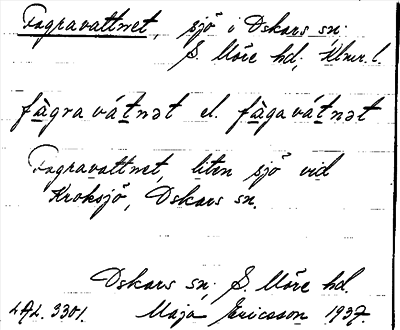 Fagravattnet, sjö i Oskars sn;
S. Möre hd; Klmr. l.
fàgra vátnət el. fàgavátnət
Fagravattnet, liten sjö vid
Kroksjö, Oskars sn.
Oskars sn; S. Möre hd.
LAL. 3301. Maja Ericsson 1937.